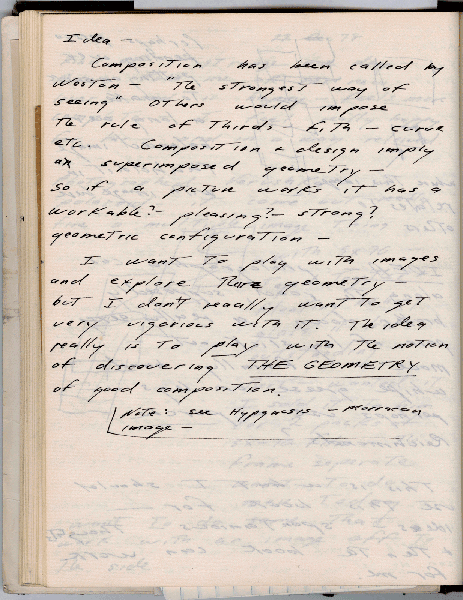 Idea
Composition has been called by
Weston - "The strongest way of
seeing" Others would impose
the rule of thirds - fifth - curve
etc. Composition & design imply
an superimposed geometry -
so if a picture works it has a
workable?- pleasing?- strong?
geometric configuration -
I want to play with images
and explore geometry -
but I don't really want to get
very vigorious with it. The idea
really is to play with the notion
of discovering THE GEOMETRY
of good composition.
Note: see Hypgnosis - morrocan
image -